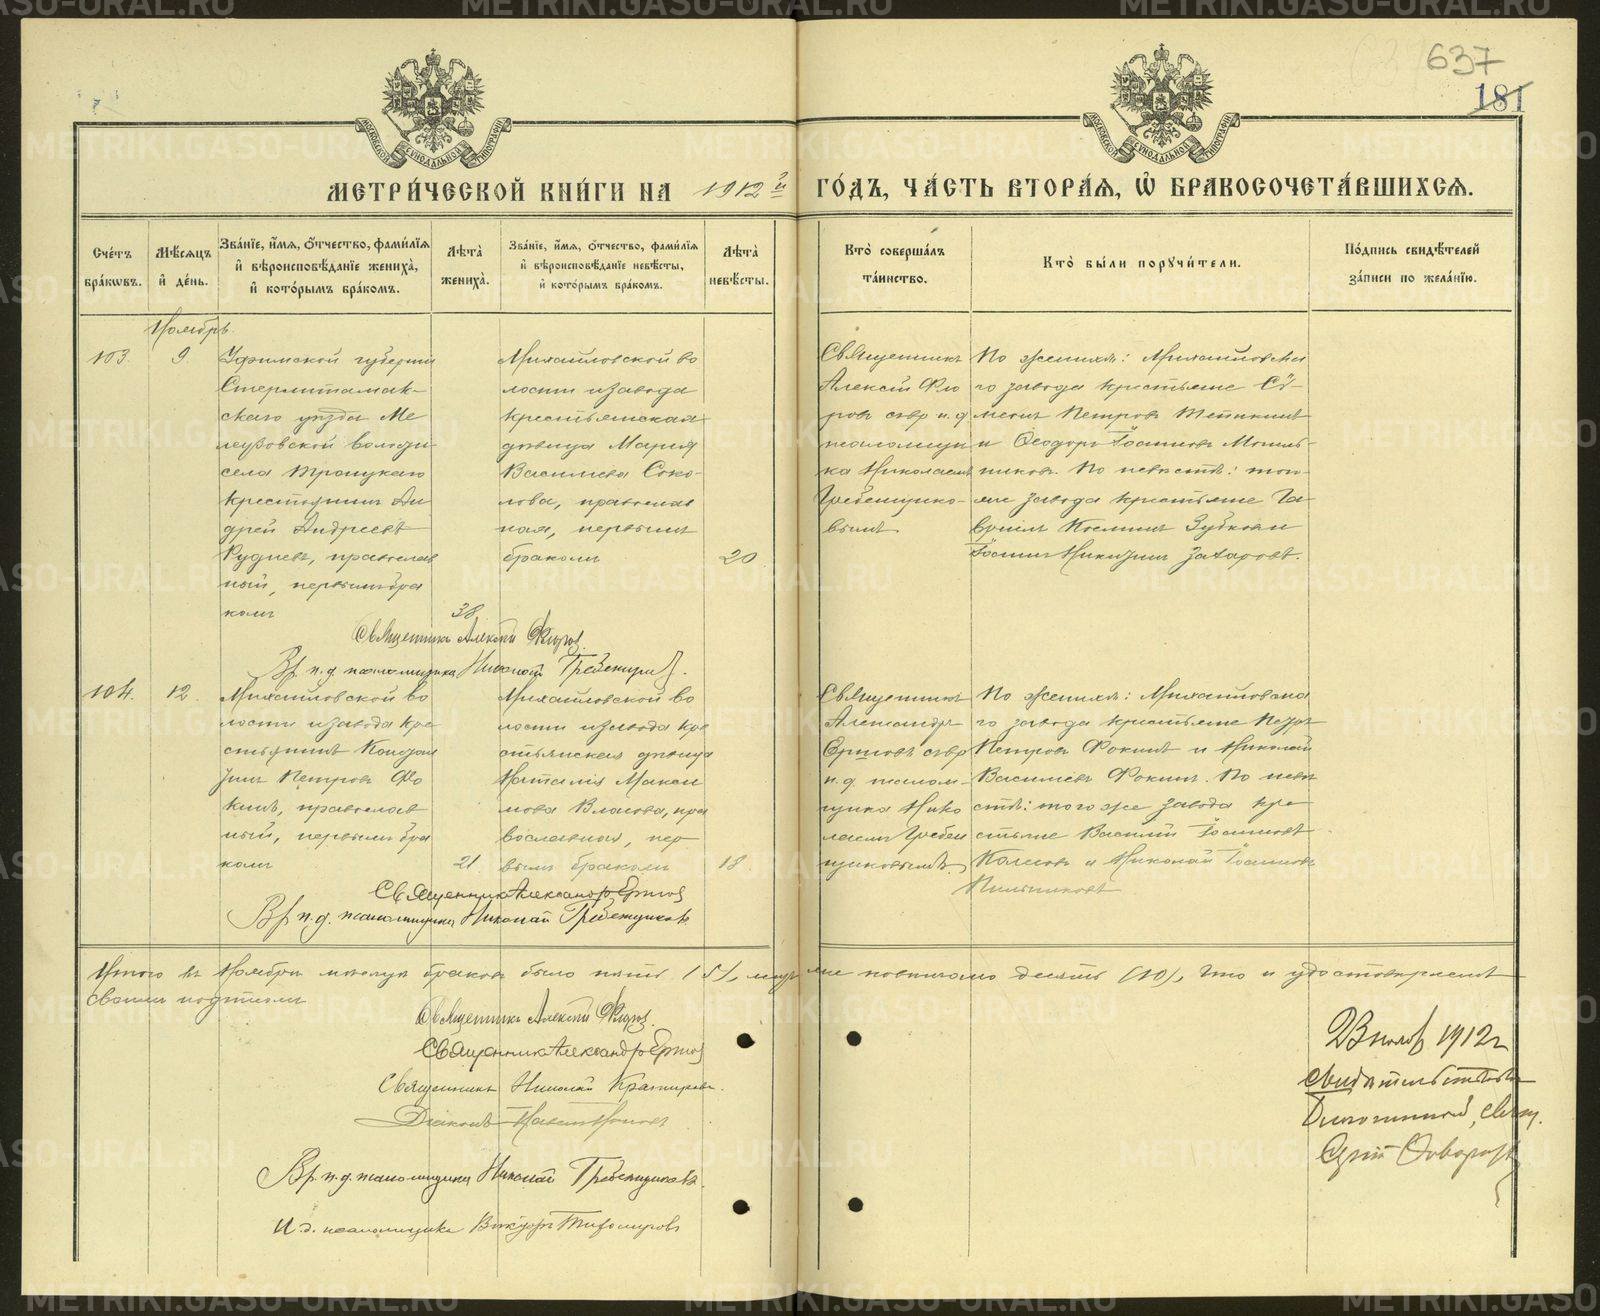 637
181
МОСКОВСКОЙ СѴНОДАЛЬНОЙ ТИПОГРАФІИ
МОСКОВСКОЙ СѴНОДАЛЬНОЙ ТИПОГРАФІИ
МЕТРИ́ЧЕСКОЙ КНИ́ГИ НА 1912 й ГО́ДЪ, ЧА́СТЬ ВТОРА́Я, Ѡ҆ БРАКОСОЧЕТА́ВШИХСЯ.
Сче́тъ бра́кѡвъ.
Мѣ́сяцъ и҆ де́нь.
Зва́нїе, и҆́мя, ѻ҆́тчество, фами́лїя
и҆ вѣроисповѣ́данїе жениха̀,
и҆ кото́рымъ бра́комъ.
Лѣта̀ жениха̀.
Зва́нїе, и҆́мя, ѻ҆́тчество, фами́лїя
и҆ вѣроисповѣ́данїе невѣ́сты,
и҆ кото́рымъ бра́комъ.
Лѣта̀ невѣ́сты.
Кто̀ соверша́лъ
та́инство.
Кто̀ бы́ли поручи́тели.
По́дпись свидѣ́телей
за́писи по жела́нїю.
Ноябрь
103.
9
Уфимской губерніи
Стерлитамак-
скаго уезда Ме
леузовской волости
села Троицкаго
крестьянинъ Ан
дрей Андреевъ
Руднев, православ
ный, первымъ бра
комъ
38
Михайловской во
лости и завода
крестьянская
девица Мария
Васильева Соко-
лова, православ
ная, первымъ
бракомъ
20
Священникъ
Алексій Фло
ров съ вр и. д
псаломщи
ка Николаемъ
Гребенщико-
вымъ
По женихѣ: Михайловска
го завода крестьяне Сѵ-
меонъ Петровъ Тетикинъ
и Ѳеодоръ Іоанновъ Мотыль-
никовъ. По невѣстѣ: того
же завода крестьяне Га
вріилъ Косминъ Зубков и
Іоаннъ Никитинъ Захаровъ.
Священникъ Алексій Флоров
Вр. и. д. псаломщика Николай Гребенщиков.
104.
12.
Михайловской во
лости и завода кре
стьянинъ Констан
тинъ Петровъ Фо
кинъ, православ
ный, первымъ бра
комъ
21.
Михайловской во
лости и завода кре
стьянская девица
Наталія Макси
мова Власова, пра
вославная, пер
вымъ бракомъ
18.
Священникъ
Александръ
Ершовъ съ вр
и. д. псалом-
щика Нико
лаемъ Гребен
щиковымъ.
По женихѣ: Михайловска
го завода крестьяне Петръ
Петровъ Фокинъ и Николай
Васильевъ Фокинъ. По невѣ
стѣ: того же завода кре
стьяне Василій Іоанновъ
и Николай Іоанновъ
Пильниковъ.
Священникъ Александръ Ершов
Вр. и. д. псаломщика Николай Гребенщиковъ
Итого въ Ноябрѣ месяцѣ браковъ было пять (5), лицъ же повенчано десять (10), что и удостоверяемъ
своими подписями
Священникъ Алексій Флоров.
Священникъ Александръ Ершов
Священникъ Николай
Діаконъ
Вр. и. д. псаломщика Николай Гребенщиковъ.
И. д. псаломщика Викторъ Тихомировъ
1912 г
свидѣтельствовалъ
Благочинный, свящ.